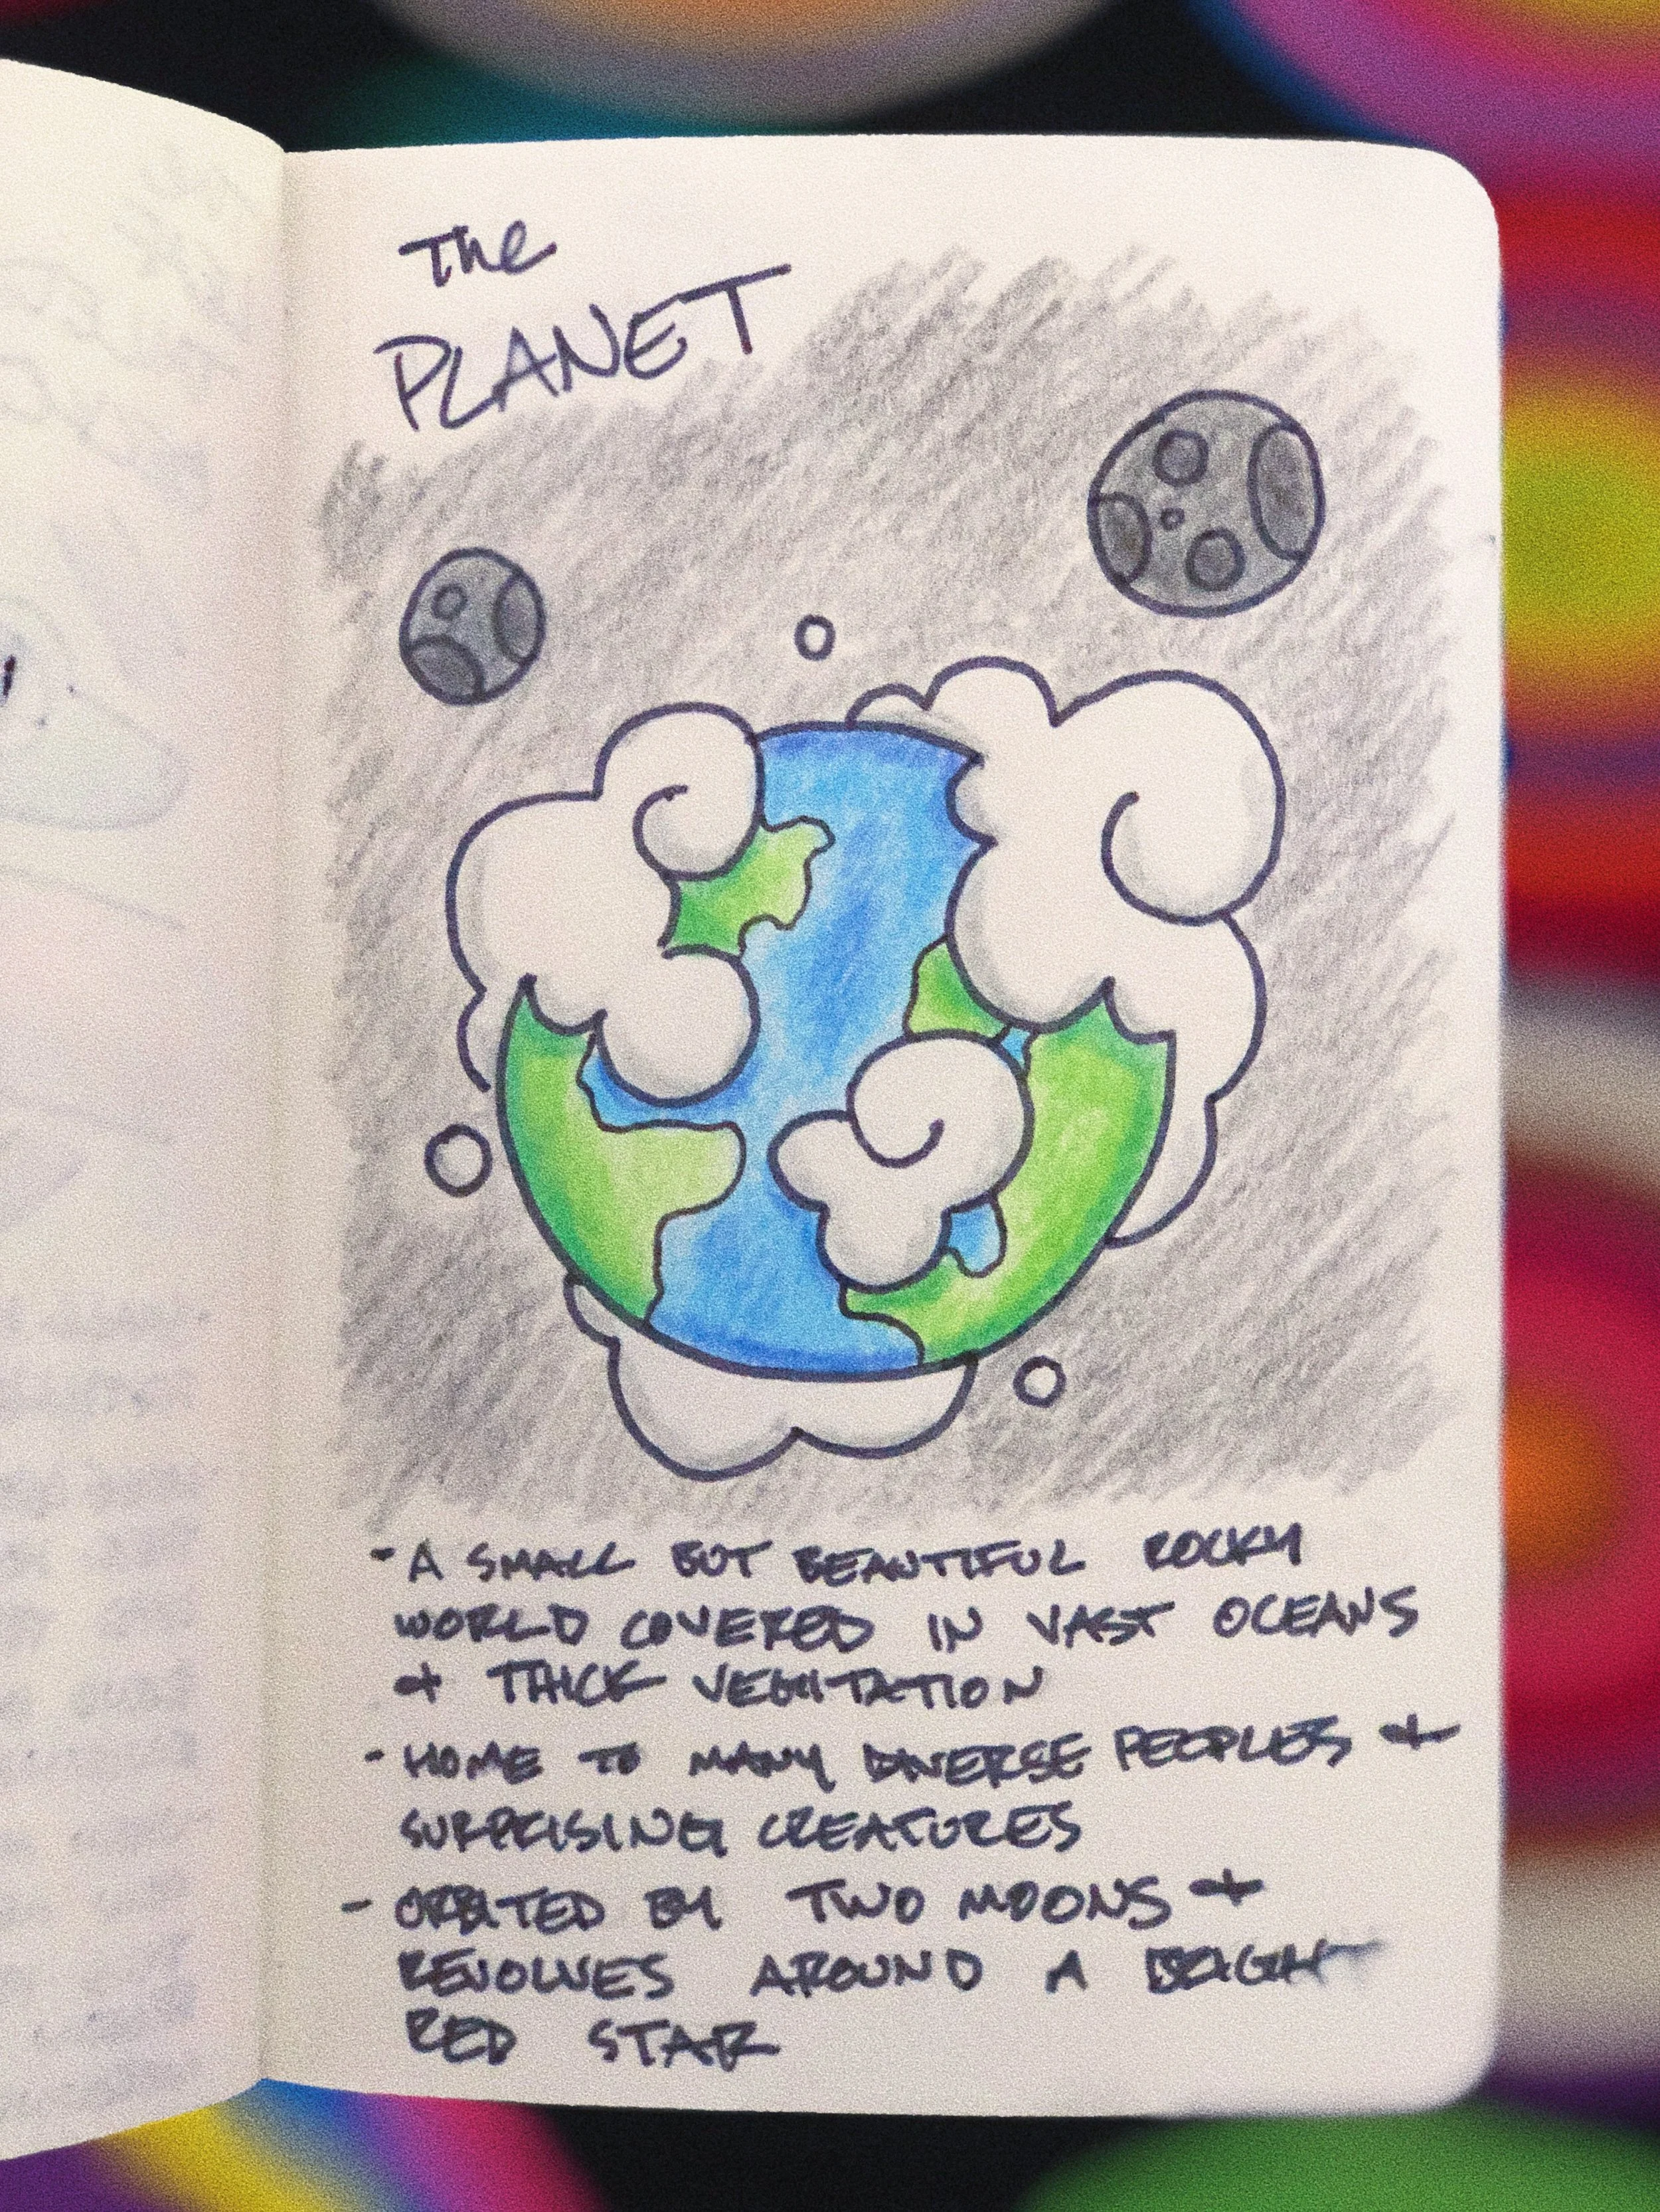 The
PLANET
- A SMALL BUT BEAUTIFUL ROCKY
WORLD COVERED IN VAST OCEANS
& THICK VEGITATION
- HOME TO MANY DIVERSE PEOPLES &
SURPRISING CREATURES
- ORBITED BY TWO MOONS &
REVOLVES AROUND A BRIGHT
RED STAR